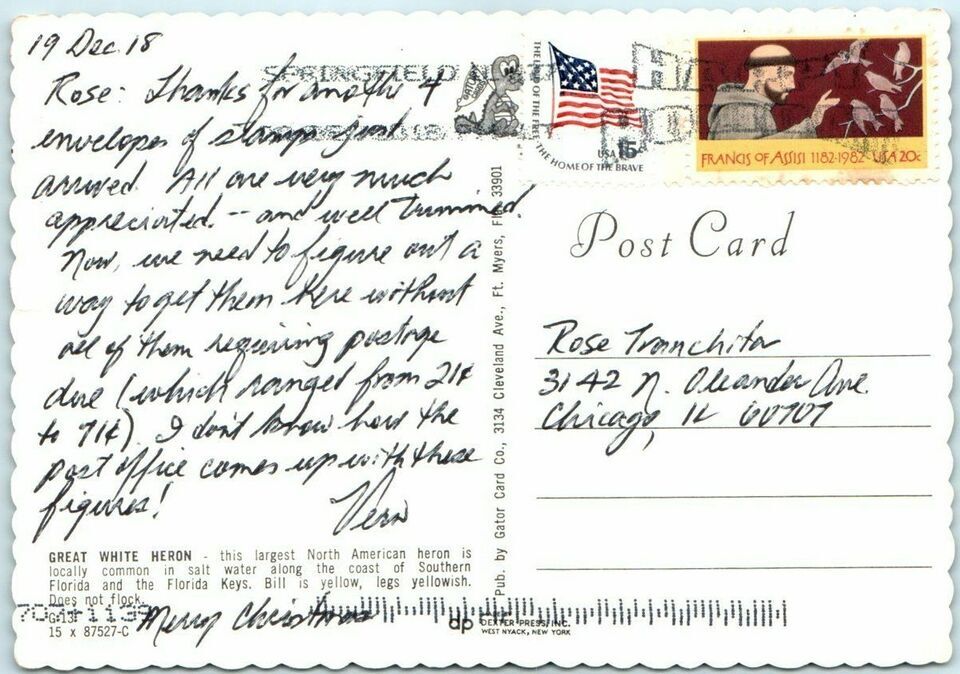 19 Dec. 18
Rose: Thanks for another 4
envelopes of stamps just
arrived. All are very much
appreciated -- and well trimmed.
Now, we need to figure out a
way to get them here without
all of them requiring postage
due (which ranged from 21¢
to 71¢). I don't know how the
post office comes up with these
figures!
Vern
GREAT WHITE HERON - this largest North American heron is
locally common in salt water along the coast of Southern
Florida and the Florida Keys. Bill is yellow, legs yellowish.
Does not flock.
G-13
15 x 87527-C
Merry Christmas
Pub. by Gator Card Co., 3134 Cleveland Ave., Ft. Myers, Fla. 33901
SPRINGFIELD
THE LAND OF THE FREE THE HOME OF THE BRAVE
USA 15c
FRANCIS OF ASSISI 1182-1982 USA 20c
Post Card
Rose Tranchita
3142 N. Oleander Ave.
Chicago, IL 60707
dp
DEXTER PRESS, INC.
WEST NYACK, NEW YORK